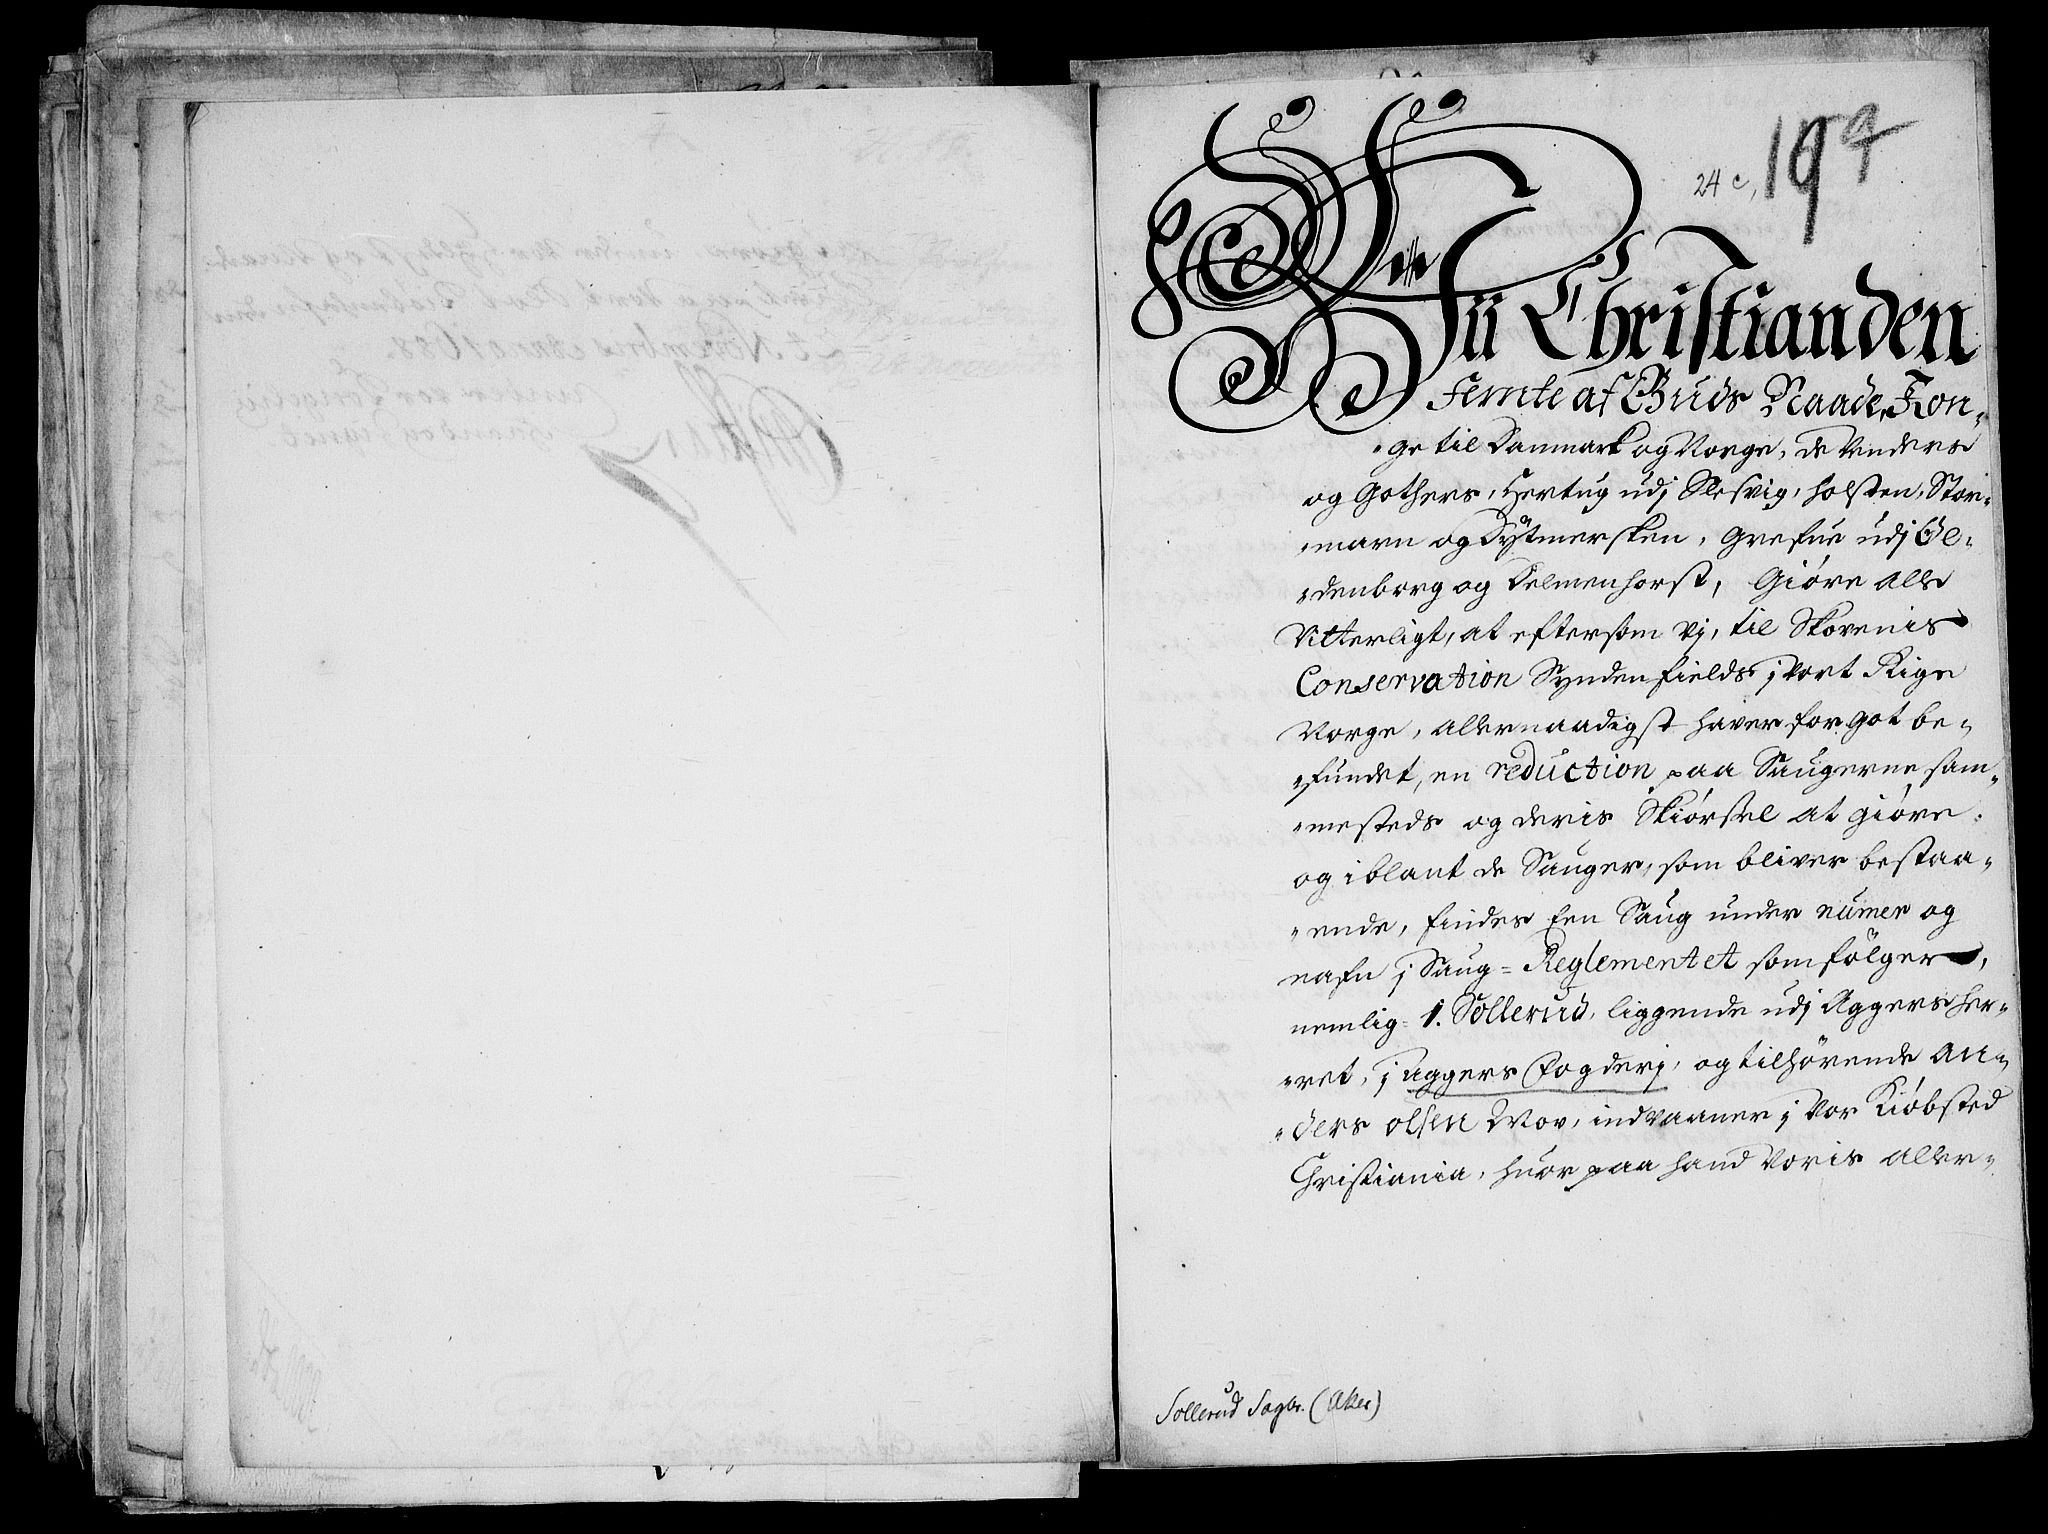 24 c,
Vii Christian den
Femte af Guds Naade, Kon-
-ge til Danmark og Norge, de Venders
og Gothers, Hertug udj Slesvig, Holsten, Stor-
-marn og Dÿtmersken, Grefue udj Ol-
-denborg og Delmenhorst, Giöre alle
Vitterligt, at eftersom Vj, til Skovenis
Conservation Synden fields j Vort Rige
Norge, allernaadigst haver for got be-
-fundet, en reduction paa Saugerne sam-
-mesteds og deris Skiörsel at giöre.
og iblant de Sauger, som bliver bestaa-
-ende, findes Een Saug under numer og
nafn j Saug-Reglementet som fölger,
nemlig 1. Sollerud, liggende udj Aggers Her-
-ret, j Aggers Fogderj, og tilhörende An-
-ders olsen Wov, indvaaner j Vor Kiöbsted
Christiania, huor paa hand Voris aller-
Sollerud Sagbr. (Aker)